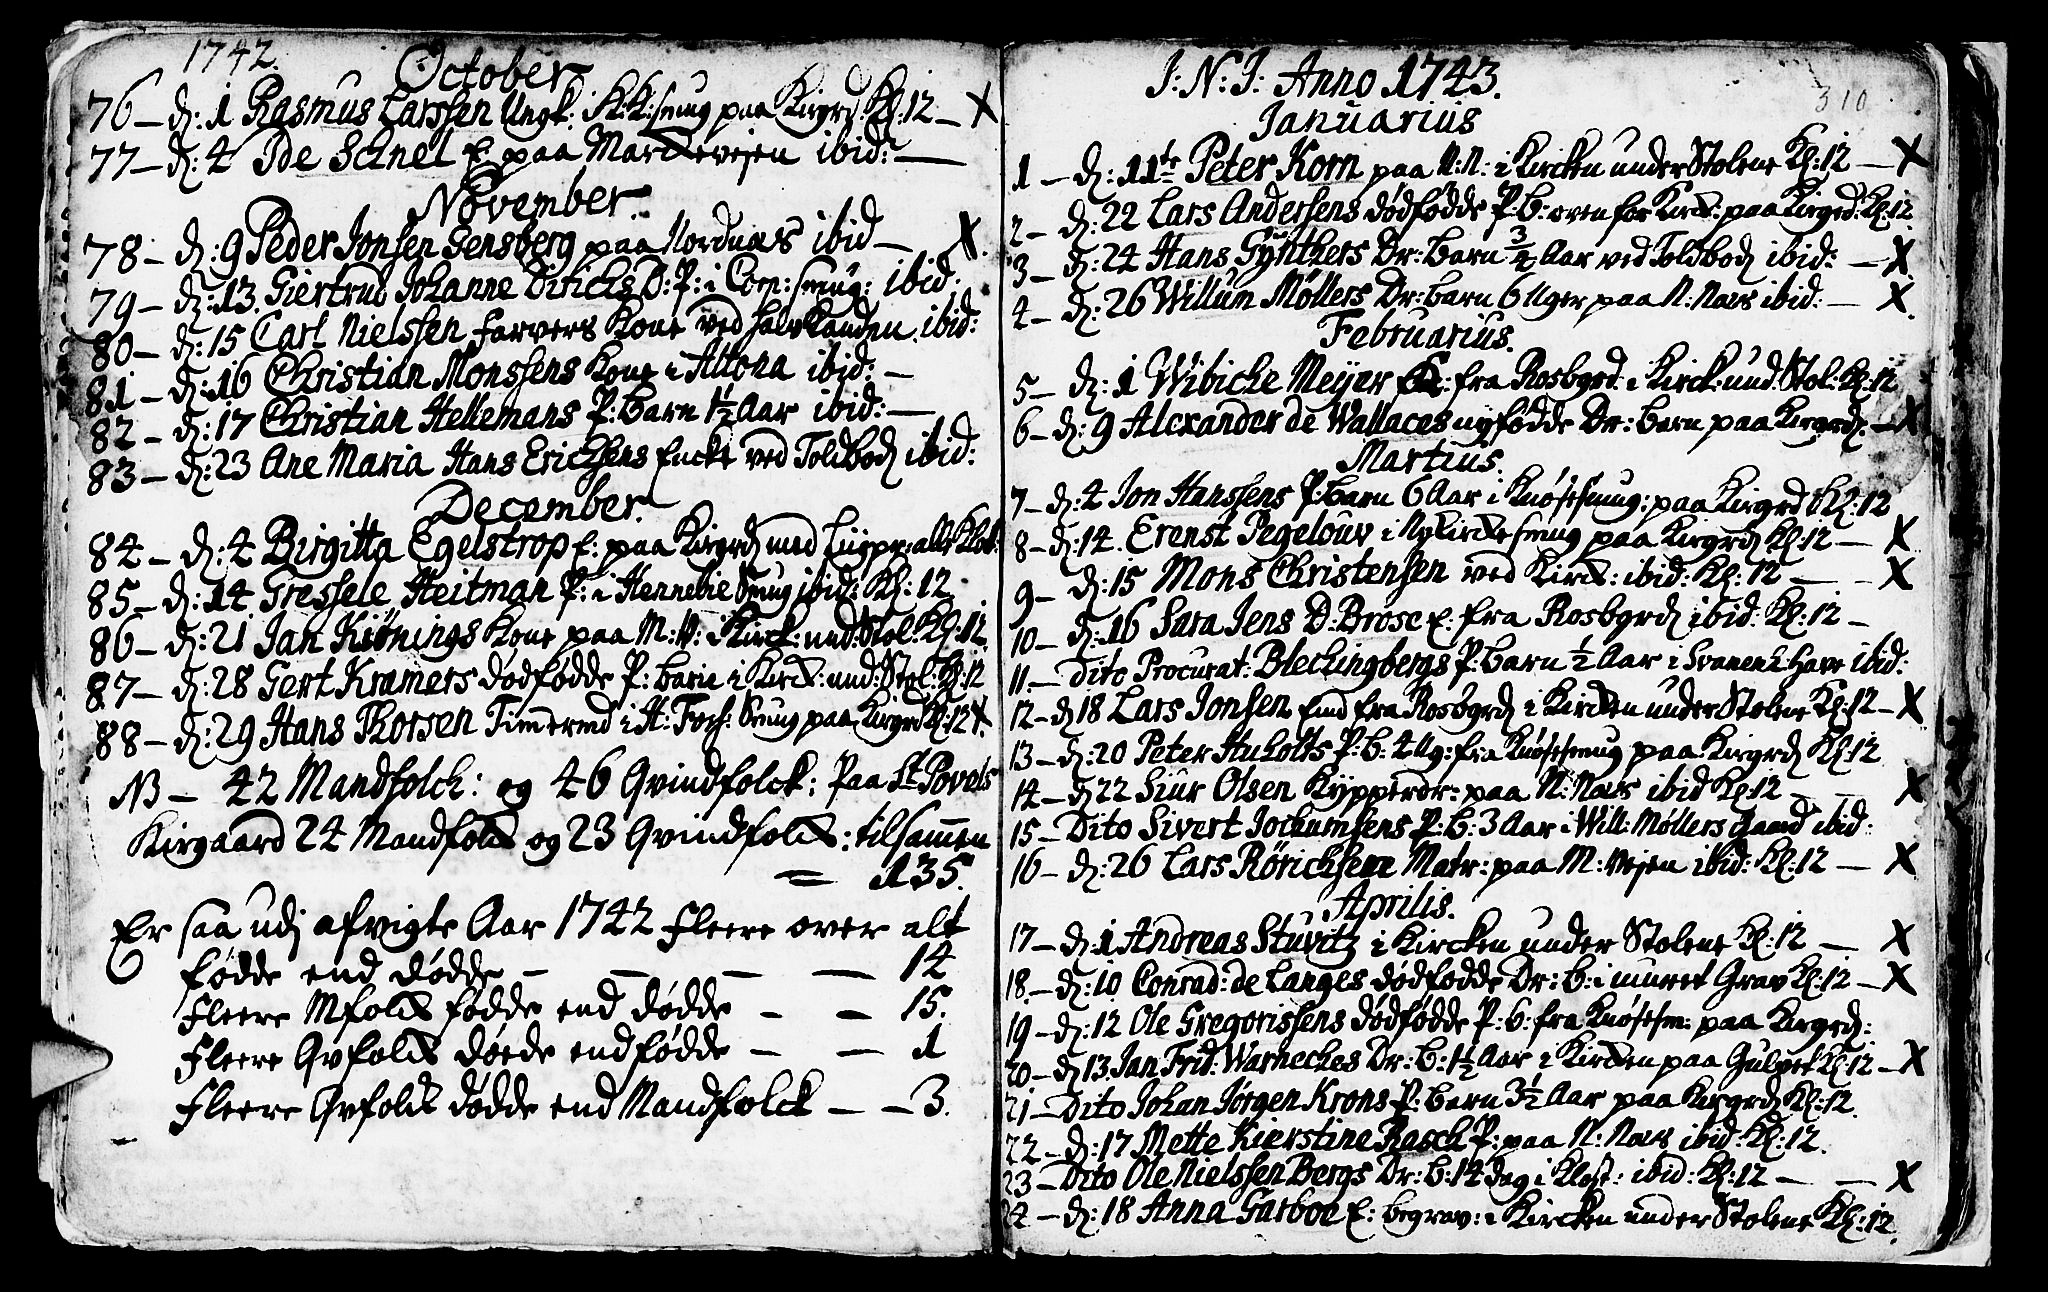 1742.
October
76 – d: 1 Rasmus Larssen Ungk: K: K: smug paa Kirgrd: Kl: 12 – X
77 – d: 4 Ide Schnel E. paa Marckevejen ibid: –
November.
78 – d: 9 Peder Jonsen Gensberg paa Nordnæs ibid – X.
79 – d: 13. Giertrud Johanne Ditichs D: P: i Corp: smug: ibid.
80 – d: 15 Carl Nielssen Farvers Kone ved halvkanden. ibid:
81 – d: 16 Christian Monssens Kone i Altona ibid: –
82 – d: 17 Christian Hellemans P: barn 1½ Aar ibid: –
83 – d: 23 Ane Maria Hans Erichsens Encke ved Toldbod ibid:
December.
84 – d: 4 Birgitta Egelstrop E: paa Kirgrd med Liigpr: alle Klok:
85 – d: 14 Gressele Heitman P: i Hennebie Smug ibid: Kl: 12
86 – d: 21 Jan Kiønings Kone paa M: V: i Kirck: und: Stol: Kl: 12.
87 – d: 28 Gert Kramers dødfødde P: barn i Kirck: und: Stol: Kl: 12
88 – d: 29 Hans Thorsen Timermd i H: Smug paa Kirgrd Kl: 12 X.
NB – 42 Mandfolck: og 46 Qvindfolck: Paa St: Povels
Kirgaard 24 Mandfolck og 23 Qvindfolck: tilsammen
= 135.
Er saa udj afvigte Aar 1742 Fleere over alt
fødde end dødde – – – – 14
Fleere Mfolck fødde end dødde – – 15.
Fleere Qvfolck døede end fødde – – 1
Fleere Qvfolck dødde end Mandfolck – – 3.
310
J: N: J: Anno 1743.
Januarius
1 – d: 11te Peter Korn paa N: N: i Kircken under Stolene Kl: 12 – X
2 – d: 22 Lars Andersens dødfødde P: B: oven for Kirck: paa Kirgrd: Kl: 12.
3 – d: 24 Hans Gÿnthers Dr: barn ¾ Aar ved Toldbod ibid: – X
4 – d: 26 Willum Møllers Dr: barn 6 Uger paa N: Næs ibid: – X.
Februarius.
5 – d: 1 Wibicke Meyer E: fra Rosbgrd: i Kirck: und: Stol: Kl: 12
6 – d: 9 Alexander de Wallaces nyfødde Dr: barn paa Kirgrd. – X
Martius.
7 – d: 4 Jon Hanssens P: barn 6 Aar i Knøsesmug: paa Kirgrd Kl: 12
8 – d: 14. Erenst Pegelouv i Nykirckesmug paa Kirgrd Kl: 12 – X
9 – d: 15 Mons Christensen ved Kirck: ibid: Kl: 12 – – X
10 – d: 16 Sara Jens D: Brose E: fra Rosbgrd ibid: Kl: 12 –
11. – Dito Procurat: Blechingbergs P: barn ½ Aar i Svanens Have ibid:
12 – d 18 Lars Jonsen Emd fra Rosbgrd i Kircken under Stolene Kl: 12 – X
13 – d: 20 Peter Huholts P: B: 4 Ug: fra Knøsesmug paa Kirgrd Kl: 12
14 – d 22 Siur Olsen Kypperdr: paa N: Næs ibid Kl: 12 – – X
15 – Dito Sivert Jochumsens P: B: 3 Aar i Will: Møllers gaard ibid:
16 – d: 26 Lars Rørichsen Matr: paa M: Vejen ibid: Kl: 12 – X
Aprilis.
17 – d: 1 Andreas Stuvitz i Kircken under Stolene Kl: 12 – X
18. – d: 10. Conrad: de Langes dødfødde Dr: B: i muret Grav Kl: 12 – X
19 – d: 12 Ole Gregorissens dødfødde P: B: fra Knøsesm: paa Kirgrd:
20 – d 13 Jan Frid: Warneckes Dr: B: 1½ Aar i Kircken paa Gulvet Kl: 12 – X
21 – Dito Johan Jørgen Krons P: barn 3½ Aar paa Kirgrd Kl: 12.
22 – d: 17 Mette Kierstine Rasch P: paa N: Næs ibid: Kl: 12.
23 – Dito Ole Nielssen Bergs Dr: B: 14 dag i Klost: ibid: Kl: 12 – – X
24 – d: 18 Anna Garboe E: begrav: i Kircken under Stolene Kl: 12.